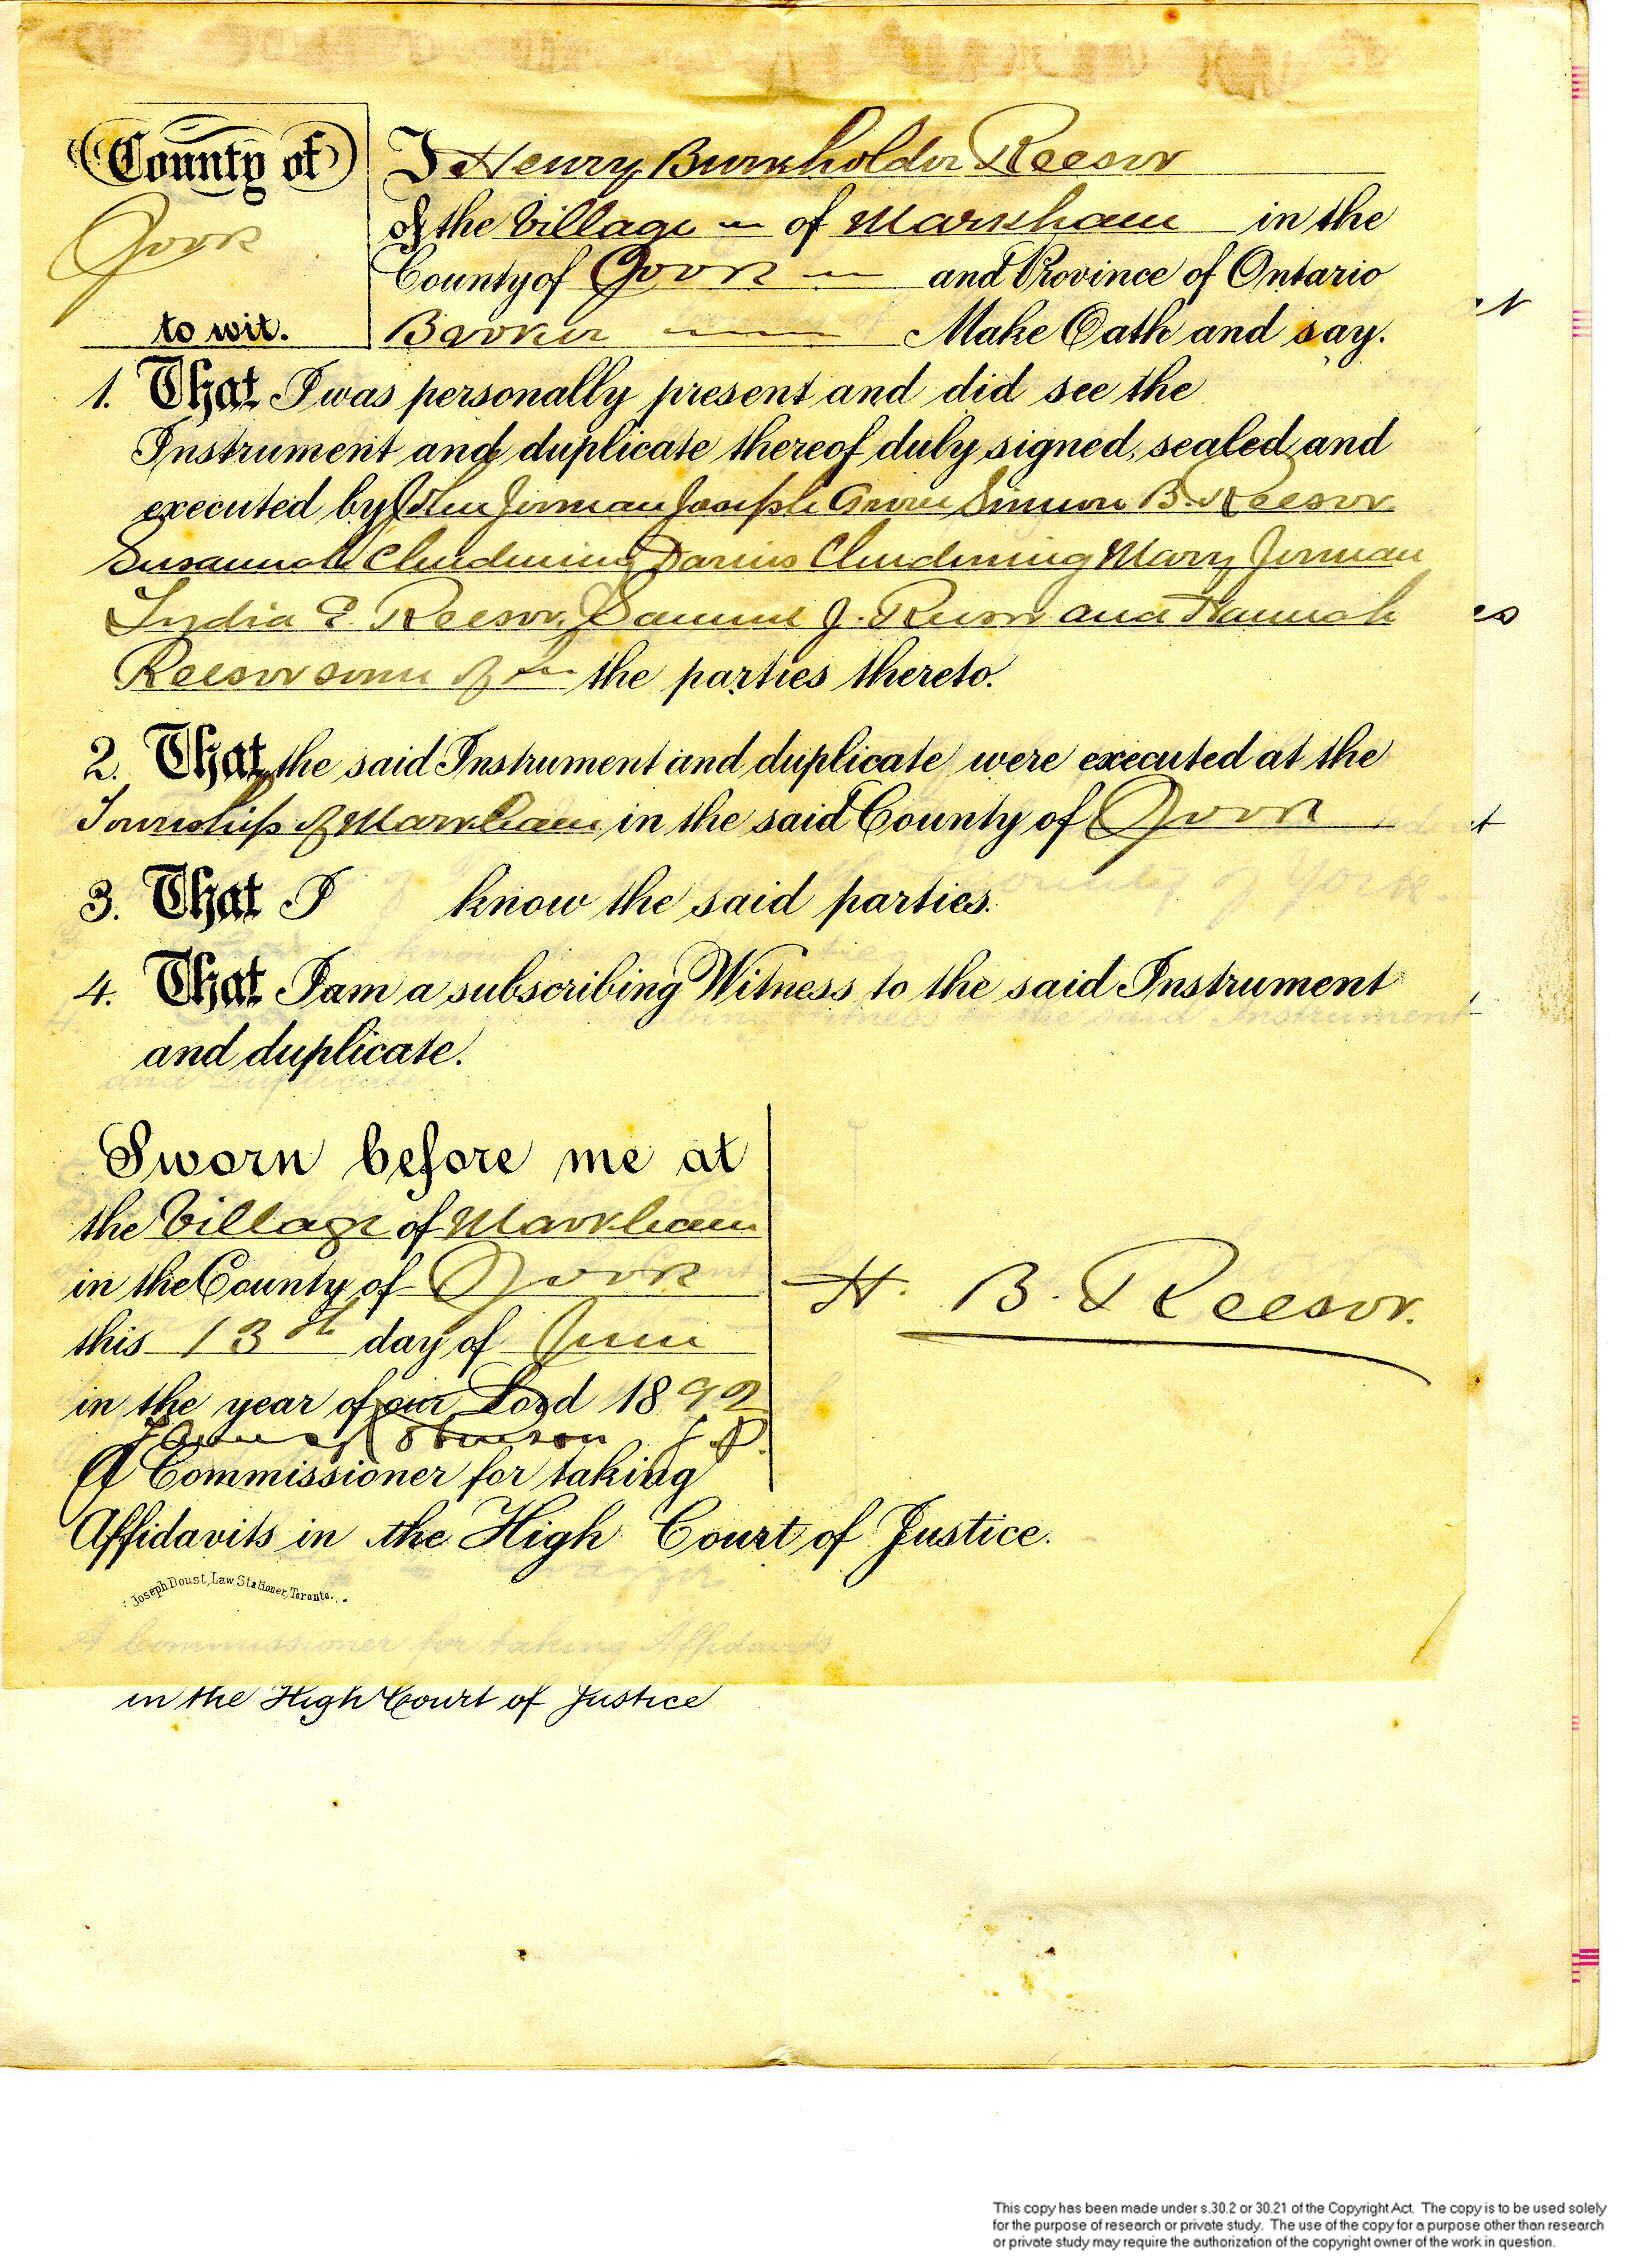 County of
York
to wit.
I Henry Burkholder Reesor
of the Village of Markham in the
County of York and Province of Ontario
Banker Make Oath and say.
1. That I was personally present and did see the
Instrument and duplicate thereof duly signed, sealed and
executed by John Jerman Joseph Simon B. Reesor
Susannah Clendening Darius Clendening Mary Jerman
Lydia E. Reesor, Samuel J. Reesor and Hannah
Reesor some of the parties thereto.
2. That the said Instrument and duplicate were executed at the
Township of Markham in the said County of York
3. That I know the said parties.
4. That I am a subscribing Witness to the said Instrument
and duplicate.
Sworn before me at
the Village of Markham
in the County of York
this 13th day of June
in the year of our Lord 1892
James Robinson J.P.
A Commissioner for taking
Affidavits in the High Court of Justice.
H. B. Reesor.
Joseph Doust, Law Stationer, Toronto.
A Commissioner for taking Affidavits
in the High Court of Justice
This copy has been made under s.30.2 or 30.21 of the Copyright Act. The copy is to be used solely
for the purpose of research or private study. The use of the copy for a purpose other than research
or private study may require the authorization of the copyright owner of the work in question.